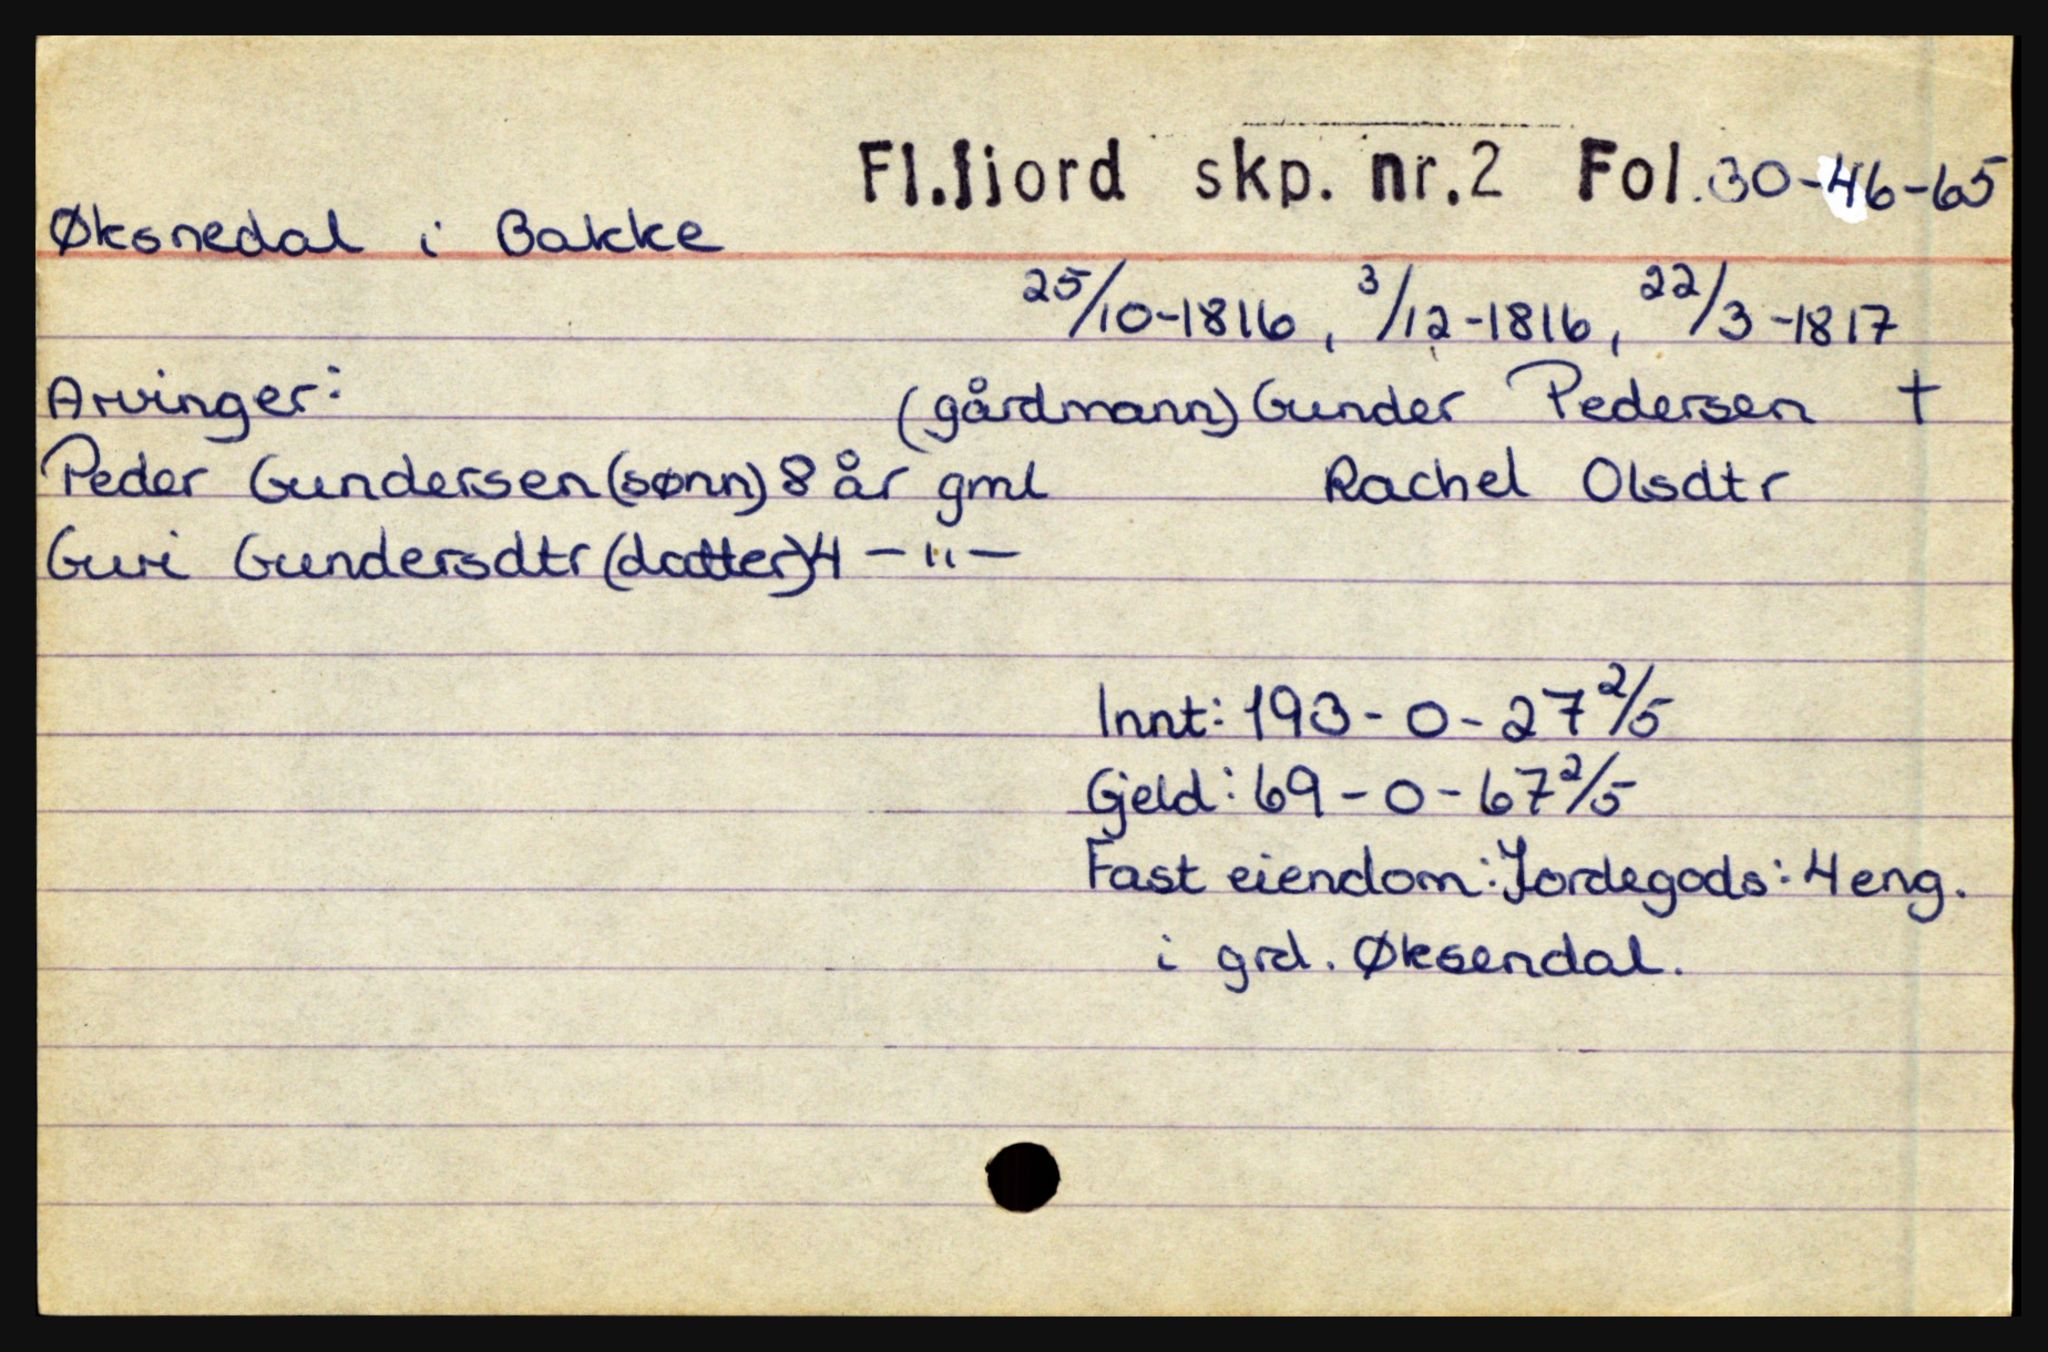 Fl.fjord skp. nr.2 Fol.30-46-65
Øksnedal i Bakke
25/10-1816, 3/12-1816, 22/3-1817
Arvinger: (gårdmann) Gunder Pedersen †
Peder Gundersen (sønn) 8 år gml Rachel Olsdtr
Guri Gundersdtr (datter) 4 — " —
Innt: 193 - 0 - 27 2/5
Gjeld: 69 - 0 - 67 2/5
Fast eiendom: Jordegods: 4 eng.
i grd. Øksendal.